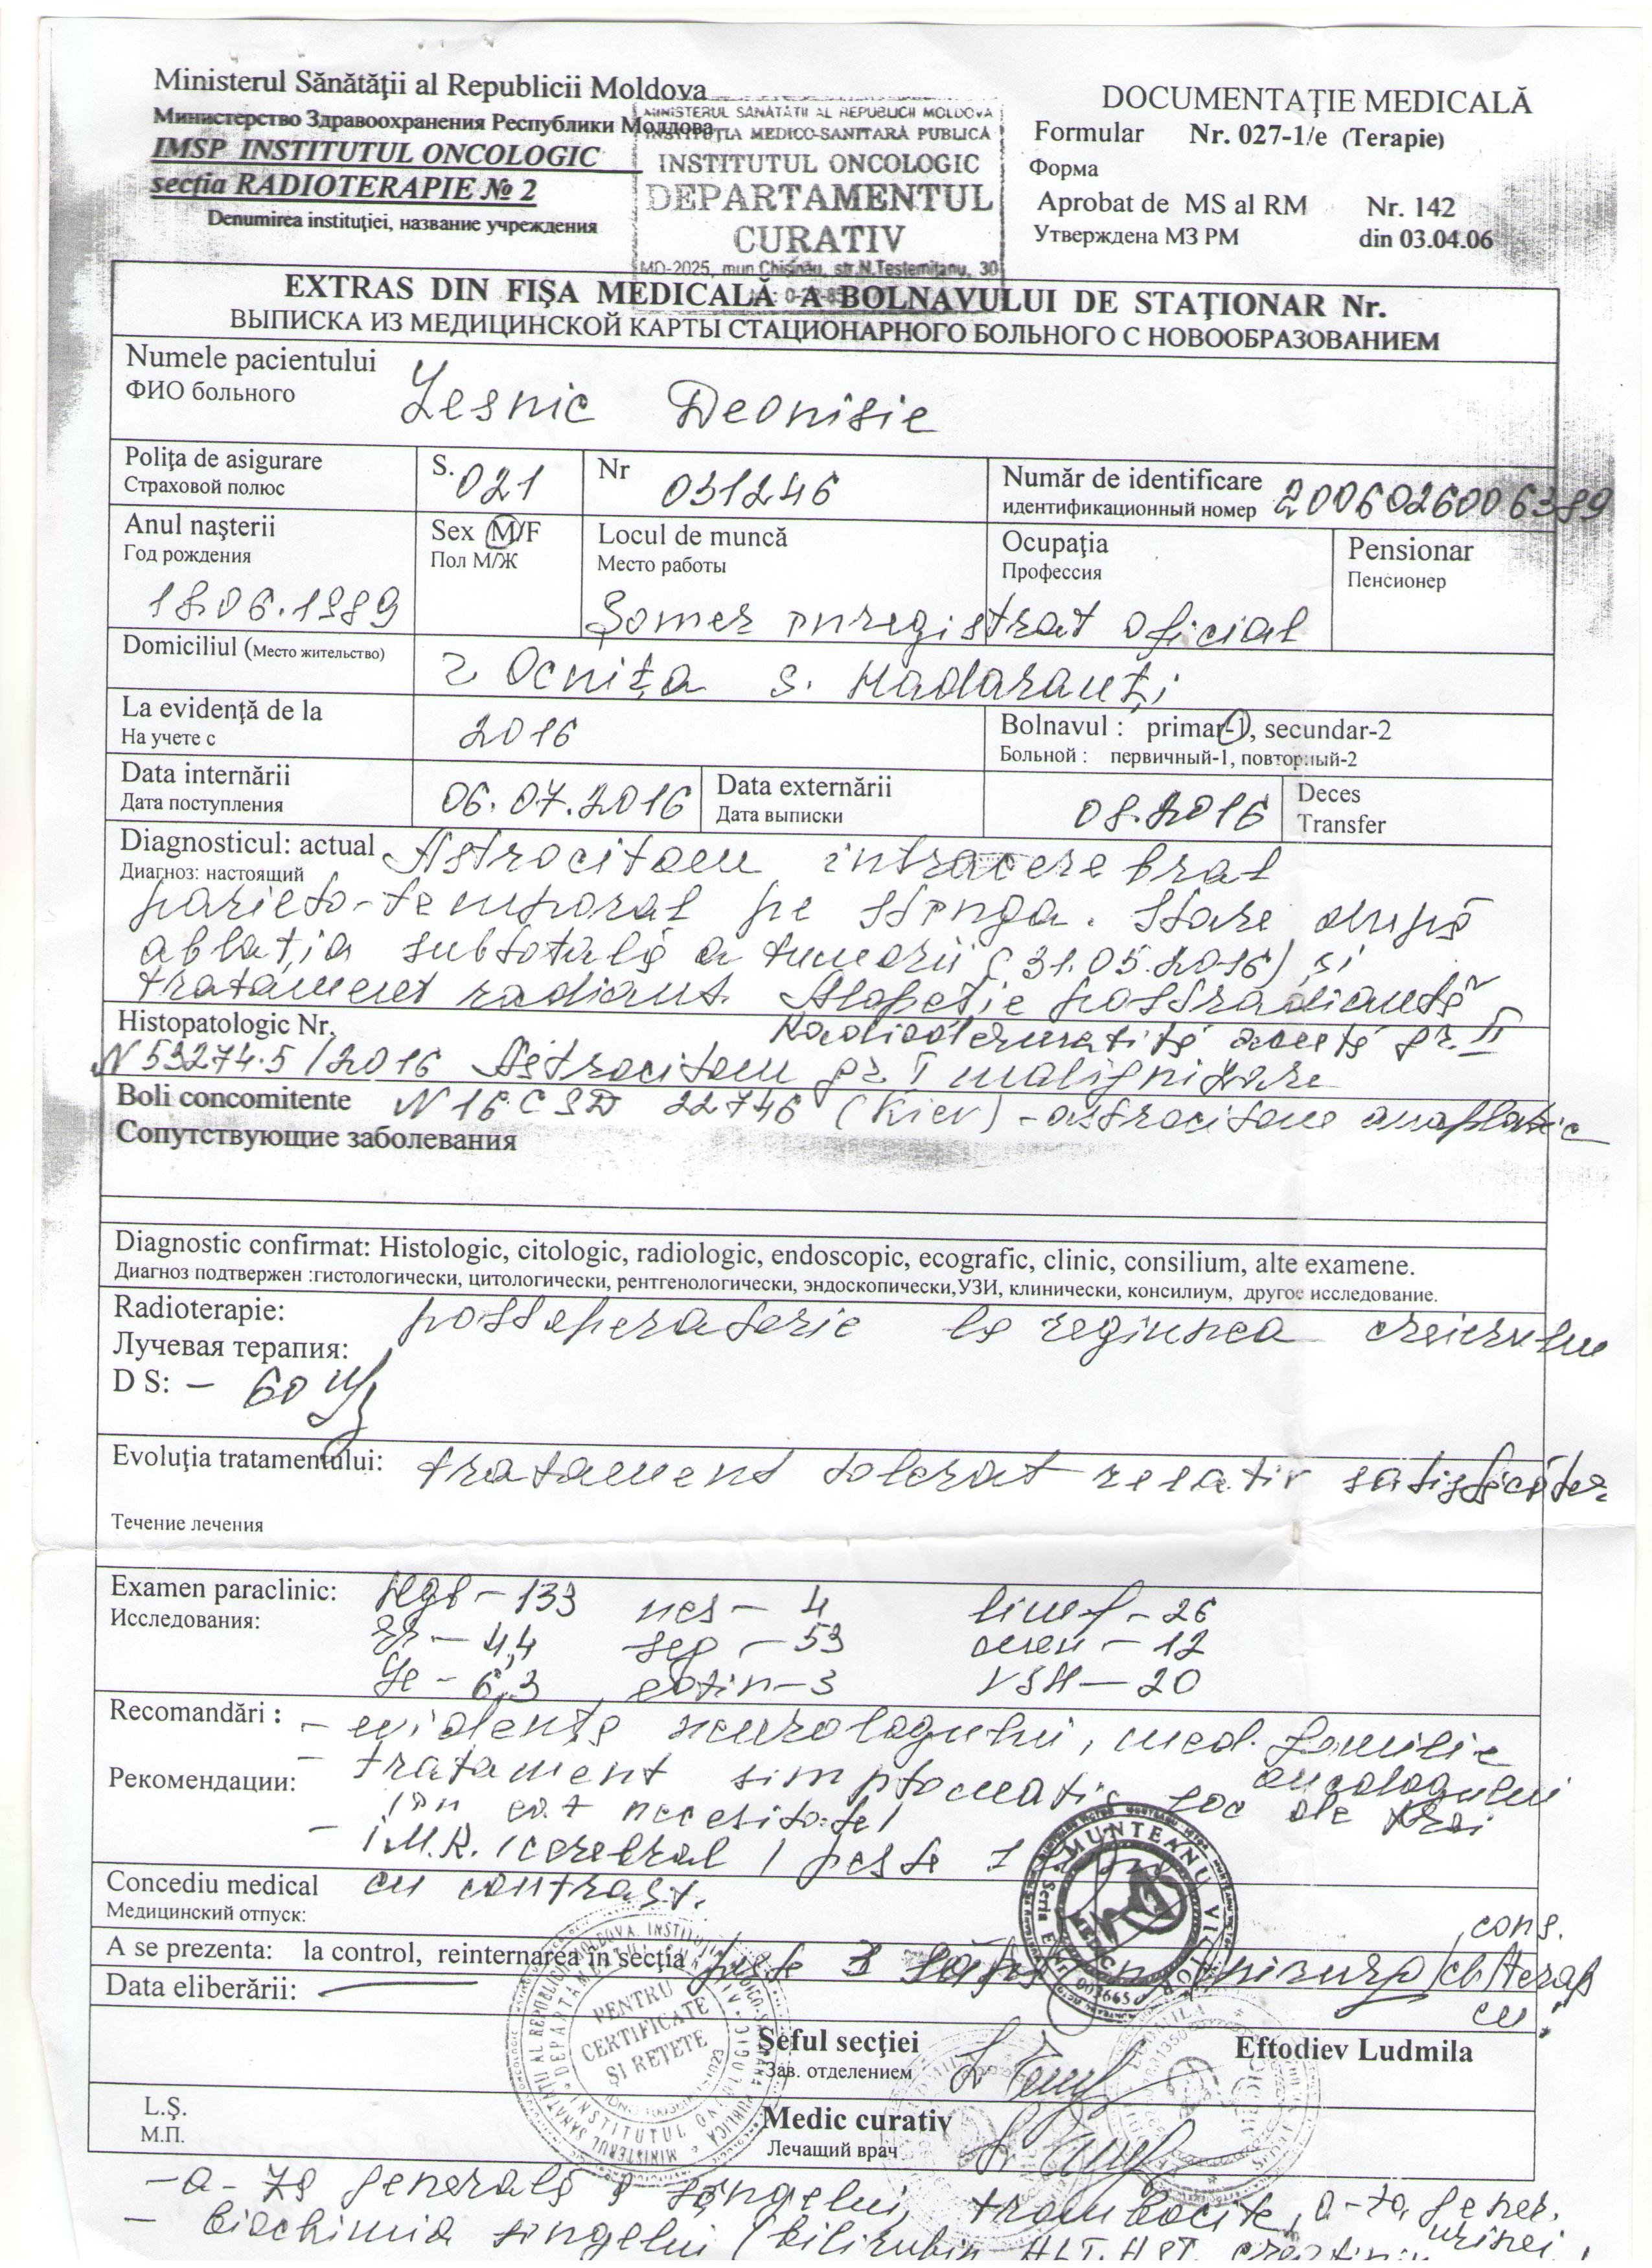 Ministerul Sănătăţii al Republicii Moldova
Министерство Здравоохранения Республики Молдова
IMSP INSTITUTUL ONCOLOGIC
secţia RADIOTERAPIE № 2
Denumirea instituţiei, название учреждения
MINISTERUL SĂNĂTĂŢII AL REPUBLICII MOLDOVA
INSTITUŢIA MEDICO-SANITARĂ PUBLICĂ
INSTITUTUL ONCOLOGIC
DEPARTAMENTUL
CURATIV
MD-2025, mun.Chişinău, str.N.Testemiţanu, 30
DOCUMENTAŢIE MEDICALĂ
Formular Nr. 027-1/e (Terapie)
Форма
Aprobat de MS al RM Nr. 142
Утверждена МЗ РМ din 03.04.06
EXTRAS DIN FIŞA MEDICALĂ A BOLNAVULUI DE STAŢIONAR Nr.
ВЫПИСКА ИЗ МЕДИЦИНСКОЙ КАРТЫ СТАЦИОНАРНОГО БОЛЬНОГО С НОВООБРАЗОВАНИЕМ
Numele pacientului Lesnic Deonisie
ФИО больного
Poliţa de asigurare S. 021 Nr 031246 Număr de identificare 2006026006389
Страховой полюс идентификационный номер
Anul naşterii Sex M/F Locul de muncă Ocupaţia Pensionar
Год рождения Пол М/Ж Место работы Профессия Пенсионер
18.06.1989 Şomer înregistrat oficial
Domiciliul (Место жительство) r. Ocniţa s. Hădărăuţi
La evidenţă de la 2016 Bolnavul : primar-1, secundar-2
На учете с Больной : первичный-1, повторный-2
Data internării 06.07.2016 Data externării 08.2016 Deces
Дата поступления Дата выписки Transfer
Diagnosticul: actual Astrocitom intracerebral
Диагноз: настоящий
parieto-temporal pe stînga. Stare după
ablaţia subtotală a tumorii (31.05.2016) şi
tratament radiant. Alopeţie postradiantă
Histopatologic Nr. Radiodermatită acută gr. II
N 53274.5/2016 Astrocitom gr I malignizare
Boli concomitente N 16 CSD 22746 (Kiev) - astrocitom anaplazic
Сопутствующие заболевания
Diagnostic confirmat: Histologic, citologic, radiologic, endoscopic, ecografic, clinic, consilium, alte examene.
Диагноз подтвержен :гистологически, цитологически, рентгенологически, эндоскопически,УЗИ, клинически, консилиум, другое исследование.
Radioterapie: postoperatorie la regiunea creierului
Лучевая терапия:
D S: – 60
Evoluţia tratamentului: tratament tolerat relativ satisfăcător
Течение лечения
Examen paraclinic: Hgb - 133 nes - 4 limf - 26
Исследования: Er - 4,4 seg - 53 mon - 12
Le - 6,3 eozin - 3 VSH - 20
Recomandări : - evidenţa neurologului, med. familie
oncologului
Рекомендации: - tratament simptomatic loc de trai
în caz necesitate!
- I.M.R. (cerebral) peste 1
Concediu medical cu contrast.
Медицинский отпуск:
cons.
A se prezenta: la control, reinternarea în secţia peste 3
Data eliberării:
PENTRU
CERTIFICATE
ŞI REŢETE
MUNTEANU VICTOR
Şeful secţiei Eftodiev Ludmila
Зав. отделением
L.Ş. Medic curativ
М.П. Лечащий врач
- a-za generală a sîngelui, trombocite, a-za gener.
urinei,
- biochimia sîngelui (bilirubin, ALT, AST, creatinin